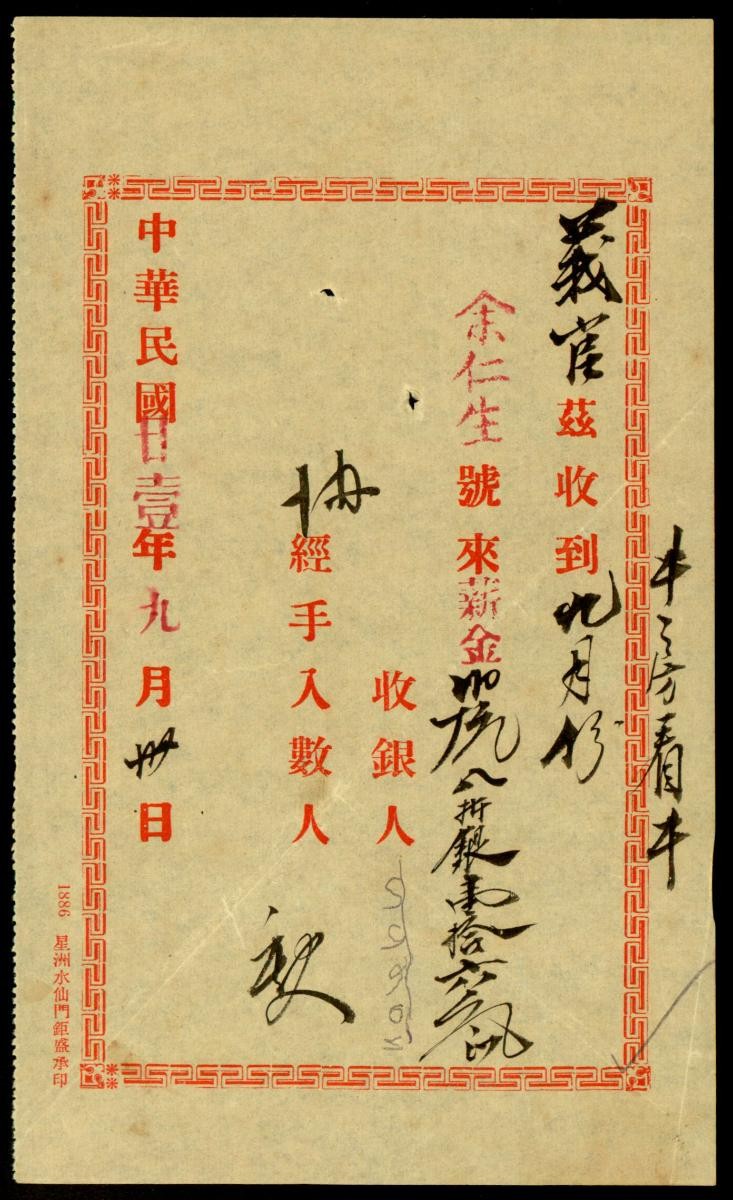 牛房看牛
義官茲收到九月份
余仁生號來薪金八折銀壹拾六
收銀人
經手入數人
中華民國廿壹年九月卅日
1886 星洲水仙門鉅盛承印